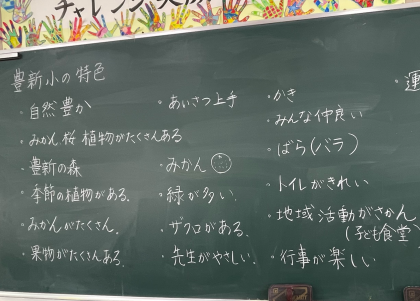 チャレンジ
豊新小の特色
・自然豊か
・みかん桜 植物がたくさんある
・豊新の森
・季節の植物がある。
・みかんがたくさん。
・果物がたくさんある。
・あいさつ上手
・みかん
・緑が多い
・ザクロがある。
・先生がやさしい。
・かき
・みんな仲良い
・ばら(バラ)
・トイレがきれい
・地域活動がさかん
(子ども食堂)
・行事が楽しい
・運